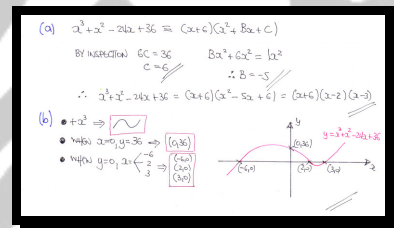 (a) x³+x²-24x+36 ≡ (x+6)(x²+Bx+C)
BY INSPECTION 6C=36 Bx²+6x²=1x²
C=6 ∴ B=-5
∴ x³+x²-24x+36 = (x+6)(x²-5x+6) = (x+6)(x-2)(x-3)
(b) • +x³ ⇒
• WHEN x=0, y=36 ⇒ (0,36)
• WHEN y=0, x= -6 2 3 ⇒ (-6,0) (2,0) (3,0)
y
y=x³+x²-24x+36
(0,36)
(-6,0) (2,0) (3,0) x